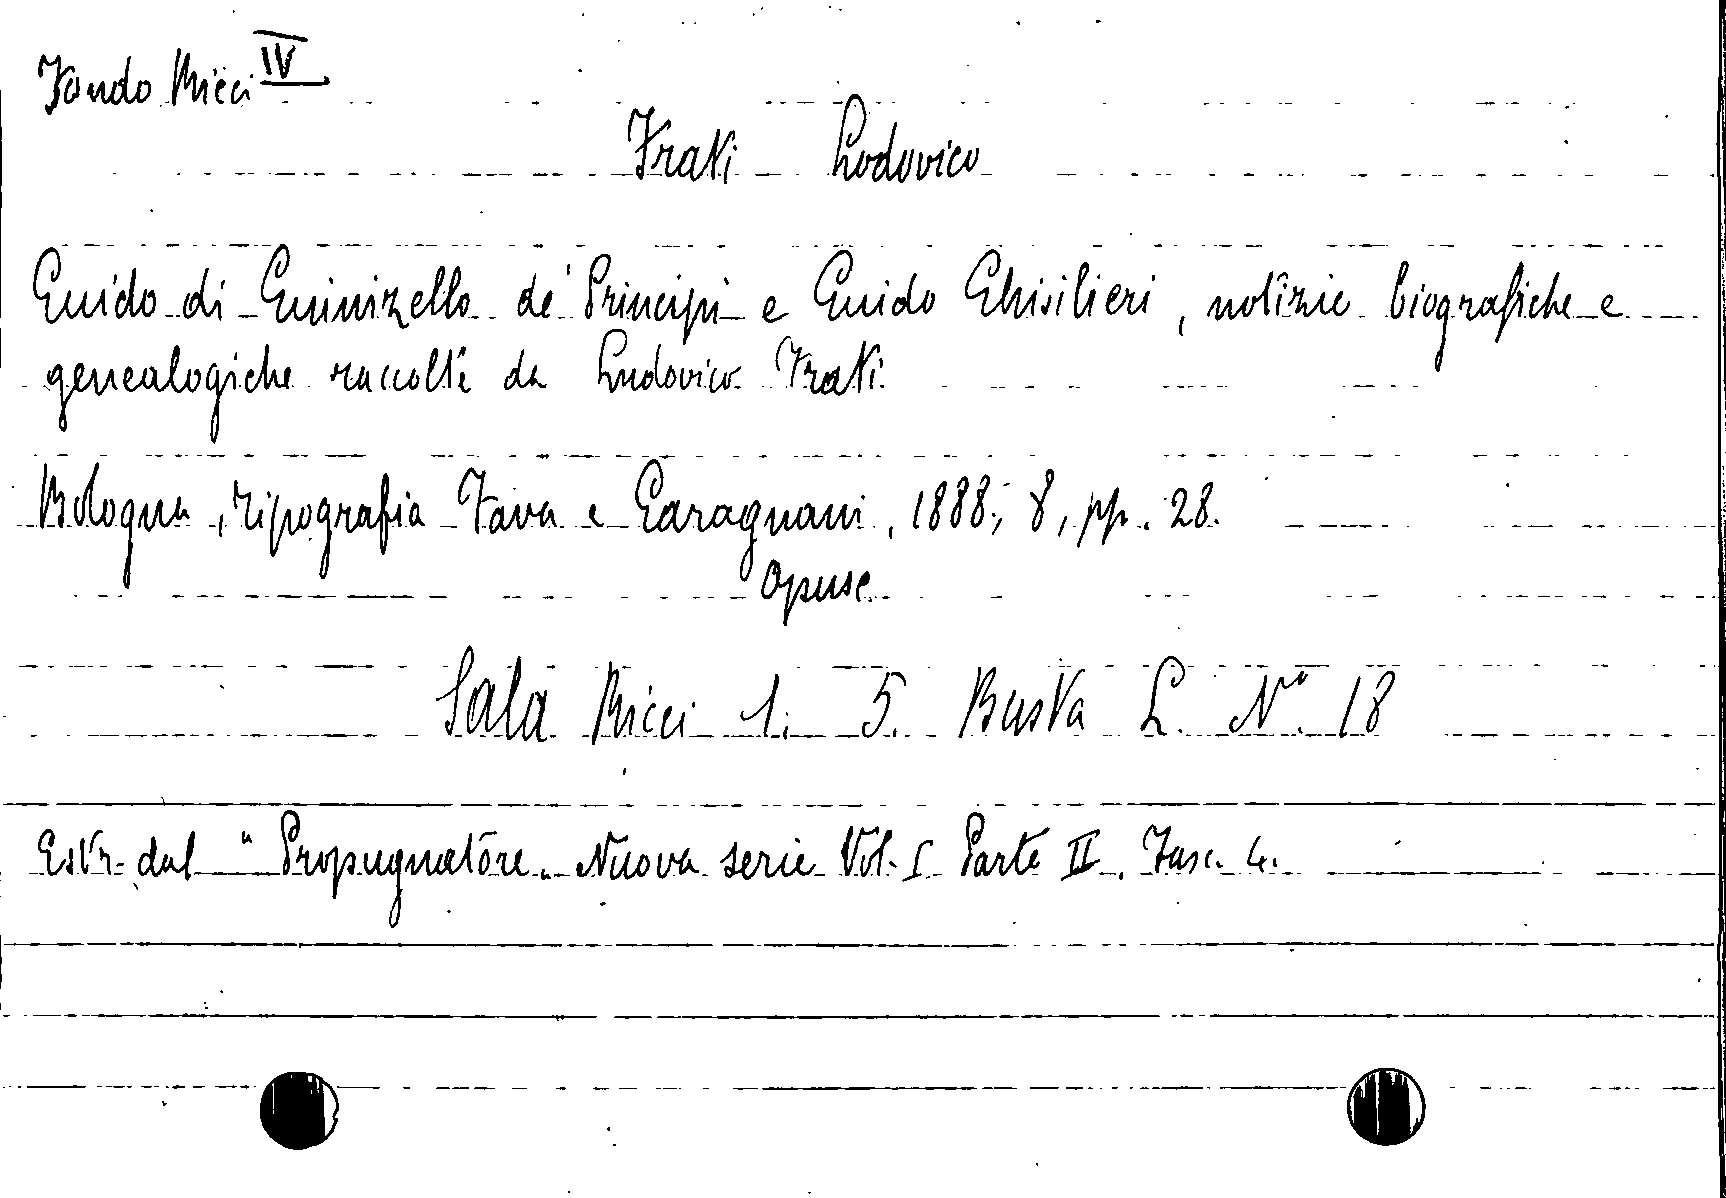 Fondo Ricci IV
Frati Lodovico
Guido di Guinizello de' Principi e Guido Ghisilieri, notizie biografiche e
genealogiche raccolte da Ludovico Frati.
Bologna, Tipografia Fava e Garagnani, 1888; 8, pp. 28.
Opusc.
Sala Ricci 1. 5. Busta L. N° 18
Estr. dal "Propugnatore" Nuova serie Vol. I Parte II. Fasc. 4.